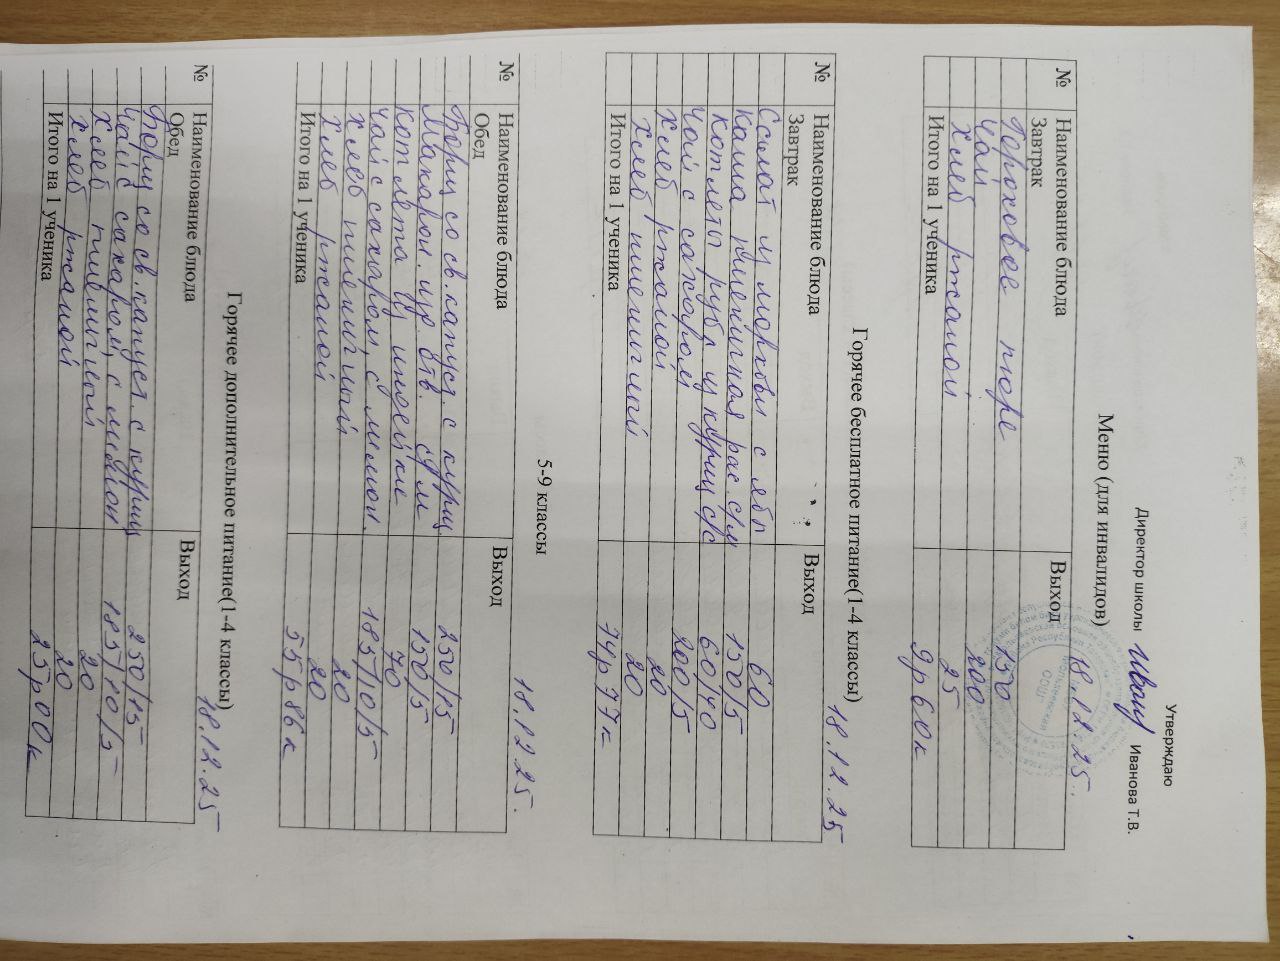 Утверждаю
Директор школы Иванова Т.В.
Меню (для инвалидов)
18.12.25.
№ Наименование блюда Выход
Завтрак
Гороховое пюре 150
чай 200
хлеб ржаной 25
Итого на 1 ученика 9р 60к
Горячее бесплатное питание(1-4 классы)
18.12.25
№ Наименование блюда Выход
Завтрак
Салат из моркови с ябл 60
Каша пшеничная рас. с/м 150/5
котлеты руб из куриц с/с 60/40
чай с сахаром 200/5
хлеб ржаной 20
хлеб пшеничный 20
Итого на 1 ученика 74р 77к
5-9 классы
18.12 25.
№ Наименование блюда Выход
Обед
Борщ со св. капуст. с куриц. 250/15
Макарон. изр отв. с/м 150/5
котлета из индейки 70
чай с сахаром, с лимон. 185/10/5
хлеб пшеничный 20
хлеб ржаной 20
Итого на 1 ученика 55р 86к
Горячее дополнительное питание(1-4 классы)
18.12.25
№ Наименование блюда Выход
Обед
Борщ со св. капуст. с куриц 250/15
чай с сахаром, с лимон 185/10/5
хлеб пшеничный 20
хлеб ржаной 20
Итого на 1 ученика 25р 00к